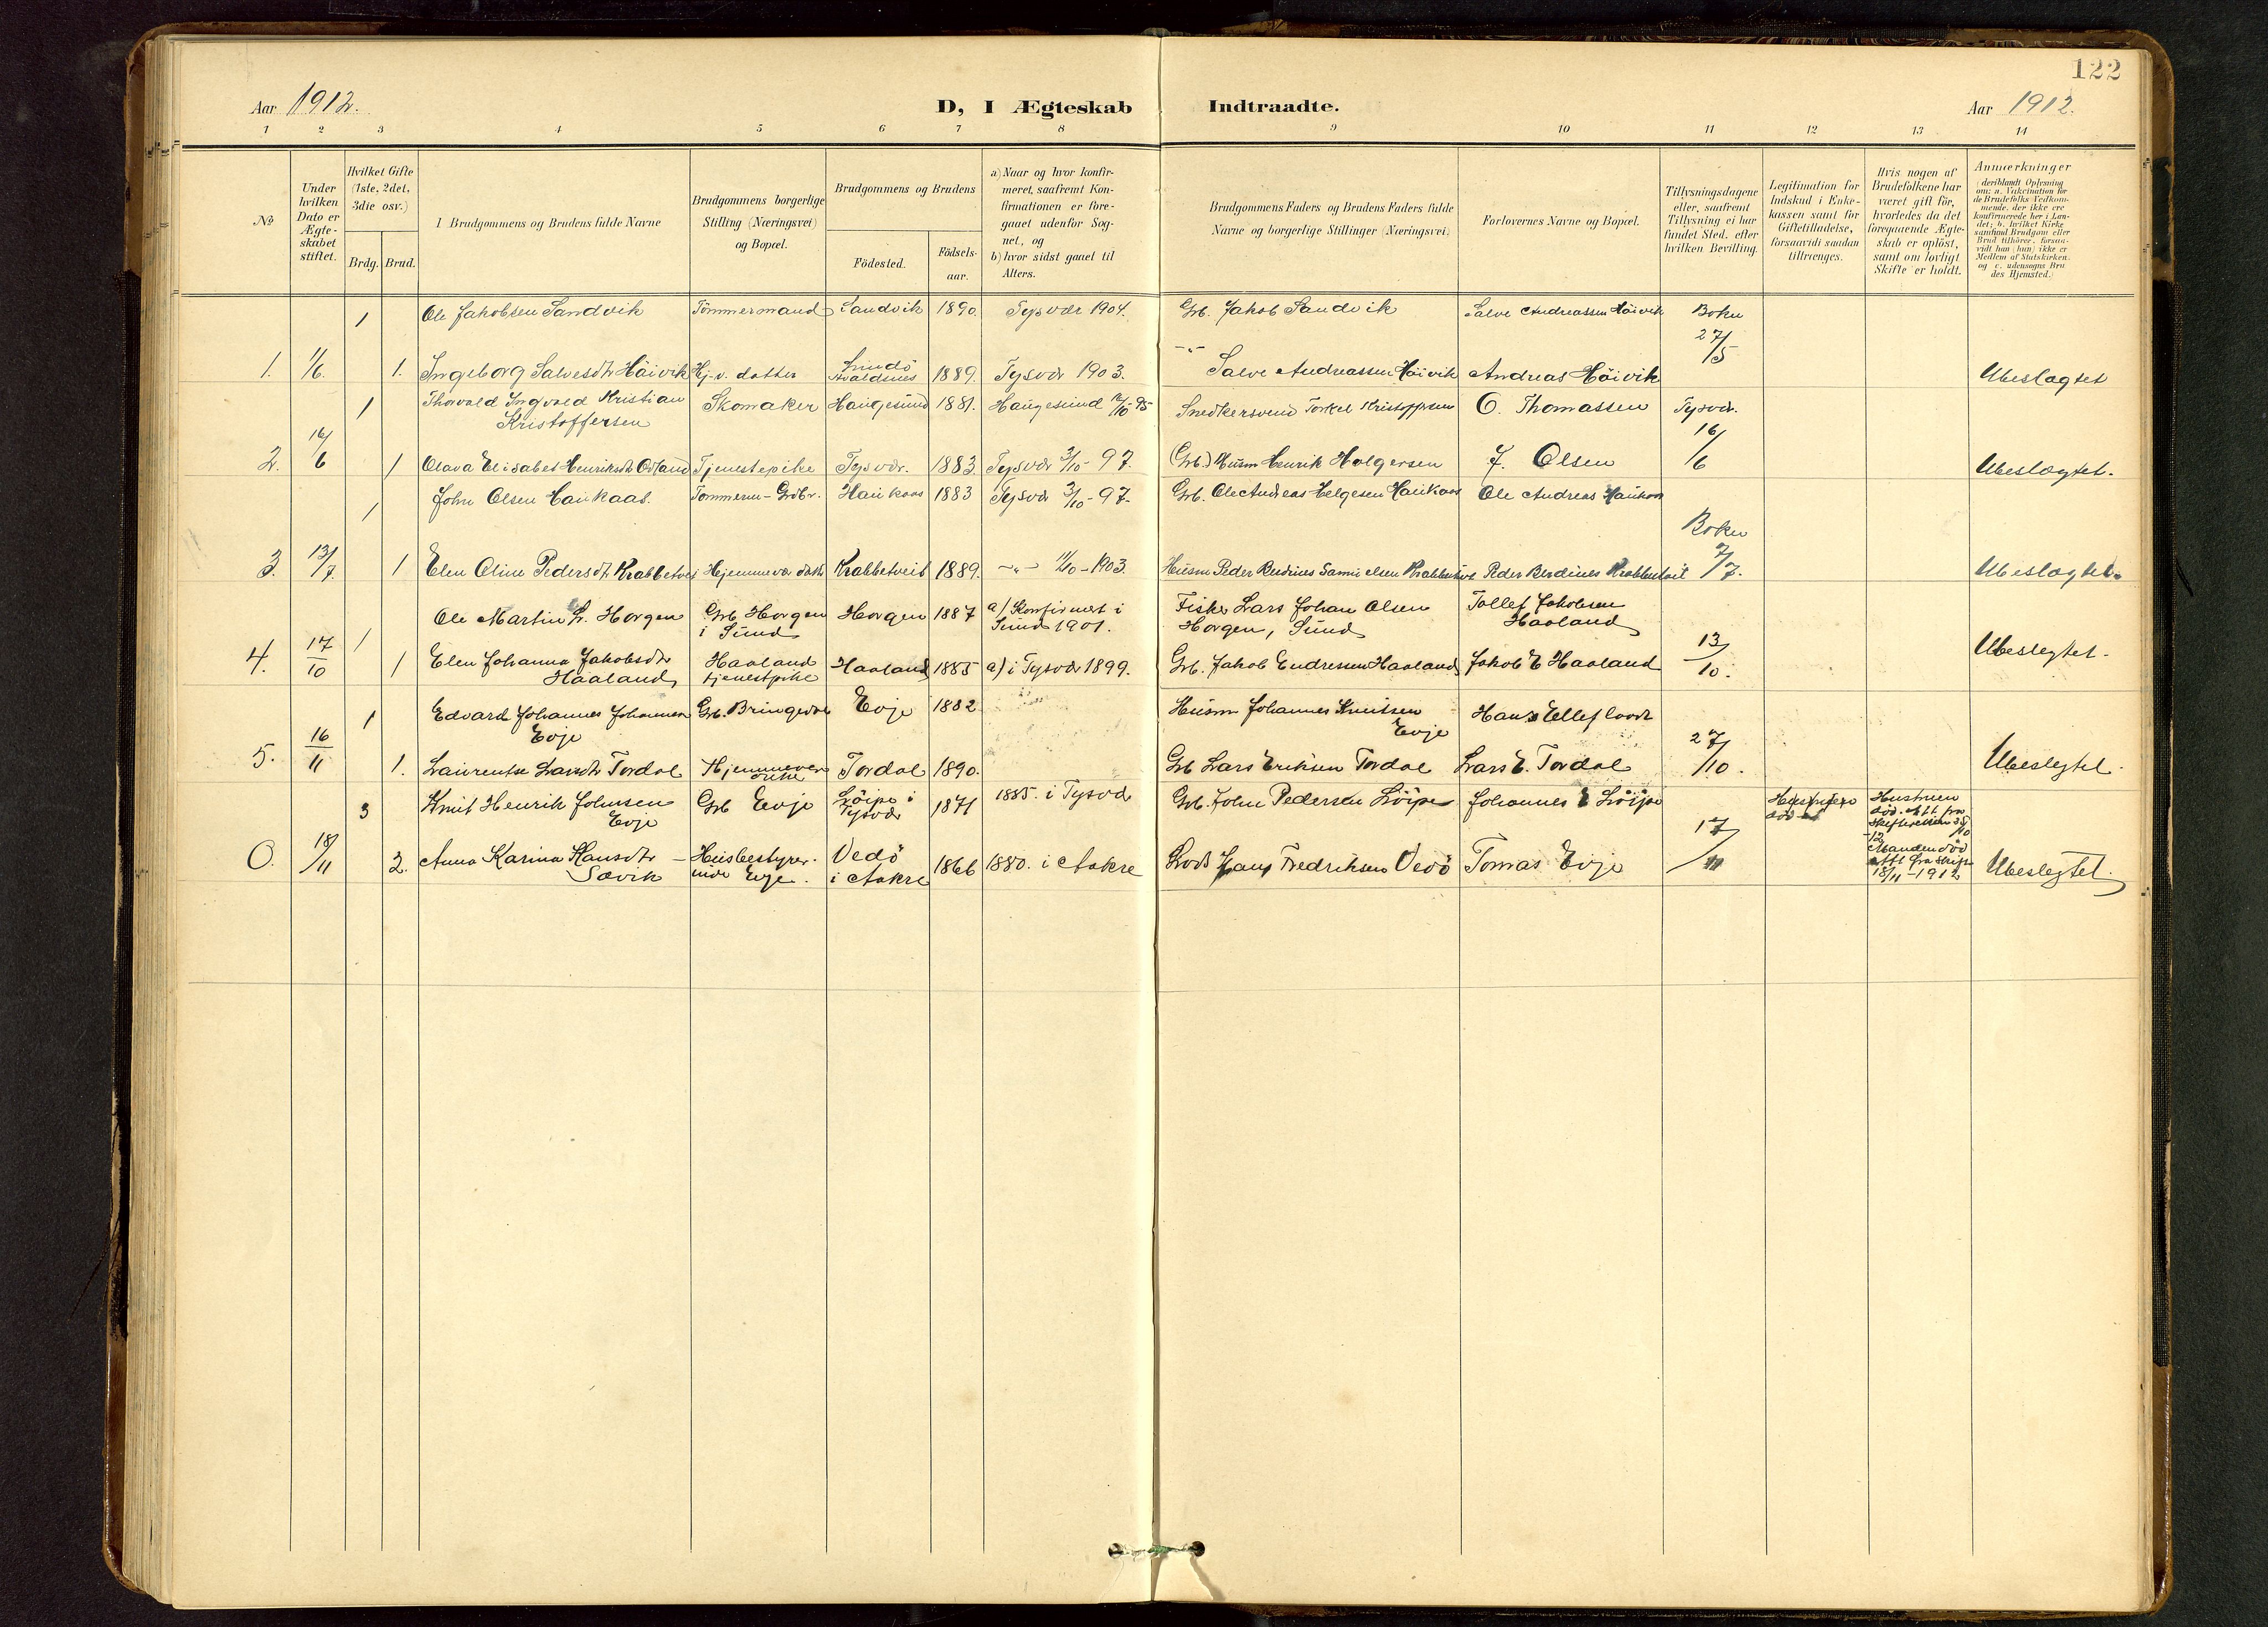 122
Aar 1912.
D, I Ægteskab Indtraadte.
Aar 1912.
1 2 3 4 5 6 7 8 9 10 11 12 13 14
No
Under hvilken Dato er Ægteskabet stiftet.
Hvilket Gifte (1ste, 2det, 3die osv.)
Brdg. Brud.
1 Brudgommens og Brudens fulde Navne
Brudgommens borgerlige Stilling (Næringsvei) og Bopæl.
Brudgommens og Brudens
Födested.
Födselsaar.
a) Naar og hvor konfirmeret, saafremt Konfirmationen er foregaaet udenfor Sognet, og
b) hvor sidst gaaet til Alters.
Brudgommens Faders og Brudens Faders fulde Navne og borgerlige Stillinger (Næringsvei)
Forlovernes Navne og Bopæl.
Tillysningsdagene eller, saafremt Tillysning ei har fundet Sted, efter hvilken Bevilling.
Legitimation for Indskud i Enkekassen samt for Giftetilladelse, forsaavidt saadan tiltrænges.
Hvis nogen af Brudefolkene har været gift för, hvorledes da det foregaaende Ægteskab er oplöst, samt om lovligt Skifte er holdt.
Anmærkninger
(deriblandt Oplysning om: a. Vakcination for de Brudefolks Vedkommende, der ikke ere konfirmerede her i Landet; b. hvilket Kirkesamfund Brudgom eller Brud tilhörer, forsaavidt han (hun) ikke er Medlem af Statskirken, og c. udensogns Brudes Hjemsted.)
1 Ole Jakobsen Sandvik Tömmermand Sandvik 1890. Tysvær 1904. Grb. Jakob Sandvik Salve Andreassen Höivik Bokn
27/5
1. 1/6. 1. Ingeborg Salvesdtr Höivik Hj.v. datter Avaldsnes 1889. Tysvær 1903. Salve Andreassen Höivik Andreas Höivik Ubeslægtet
1 Thorvald Ingvald Kristian Kristoffersen Skomaker Haugesund 1881. Haugesund /10 95 Snedkersvend Torkel Kristoffersen O. Thomassen Tysvær.
16/6
2. 16/6 1 Olava Elisabet Henriksdtr Tjenestepike Tysvær. 1883. Tysvær 3/10-97. (Grb.) Husm Henrik Holgersen J. Olsen Ubeslægtet.
1 John Olsen Haukaas. Tömmerm-Grdbr. Haukaas 1883 Tysvær 3/10-97. Grb. Ole Andreas Helgesen Haukaas Ole Andreas Haukaas
Bokn
3. 13/7 1 Elen Oline Pedersdtr Krabbetveit Hjemmevær datter Krabbetveit 1889. -"- 11/10-1903. Husm Peder Berdines Samuelsen Krabbetveit Peder Berdines Krabbetveit 7/7. Ubeslægtet.
1 Ole Martin L. Horgen Grb. Horgen i Sund Horgen 1887 a) Konfirmert i Sund 1901. Fisker Lars Johan Olsen Horgen, Sund Tollef Jakobsen Haaland
4. 17/10 1 Elen Johanna Jakobsdtr Haaland Haaland tjenestpike Haaland 1885 a) i Tysvær 1899. Grb. Jakob Endresen Haaland Jakob E Haaland 13/10. Ubeslegtet.
1 Edvard Johannes Johannesen Evje Grb. Bringedal Evje 1882 Husm Johannes Knutsen Evje Hans
5. 16/11 1. Laurentse Larsdtr Tordal Hjemmevær 1890. Tordal Grb Lars Eriksen Tordal Lars E. Tordal 27/10. Ubeslegtet.
3 Knut Henrik Johnsen Evje Grb Evje Löipe i Tysvær 1871 1885. i Tysvær Grb. John Pedersen Löipe Johannes Löipe Hustruen död. Att. fra Skifteretten
0. 18/11 2. Anna Karina Hansdtr Sævik Husbestyrerinde Evje. Vedö i Aakre 1866 1880. i Aakre Lods Hans Fredriksen Vedö Tomas Evje 17/11 Manden död Att fra 18/11-1912 Ubeslegtet.